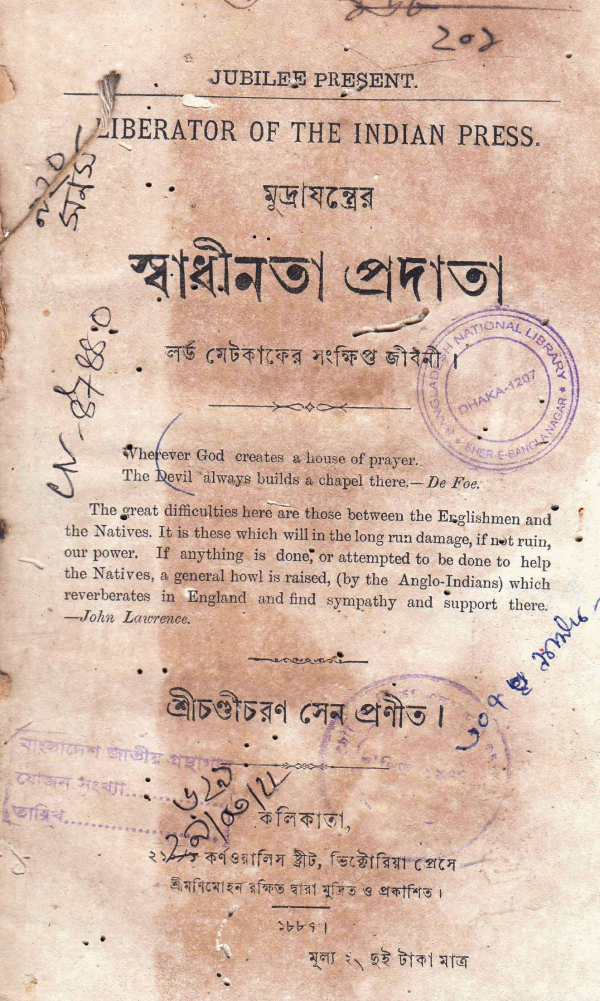 ২০১
JUBILEE PRESENT.
LIBERATOR OF THE INDIAN PRESS.
মুদ্রাযন্ত্রের
স্বাধীনতা প্রদাতা
লর্ড মেটকাফের সংক্ষিপ্ত জীবনী।
BANGLADESH NATIONAL LIBRARY
DHAKA-1207
SHER-E-BANGLA NAGAR
Wherever God creates a house of prayer.
The Devil always builds a chapel there.— De Foe.
The great difficulties here are those between the Englishmen and
the Natives. It is these which will in the long run damage, if not ruin,
our power. If anything is done, or attempted to be done to help
the Natives, a general howl is raised, (by the Anglo-Indians) which
reverberates in England and find sympathy and support there.
—John Lawrence.
শ্রীচণ্ডীচরণ সেন প্রণীত।
বাংলাদেশ জাতীয় গ্রন্থাগার
যোজন সংখ্যা
তারিখ
কলিকাতা,
কর্ণওয়ালিস ষ্ট্রীট, ভিক্টোরিয়া প্রেসে
শ্রীমণিমোহন রক্ষিত দ্বারা মুদ্রিত ও প্রকাশিত।
১৮৮৭।
মূল্য ২৲ দুই টাকা মাত্র